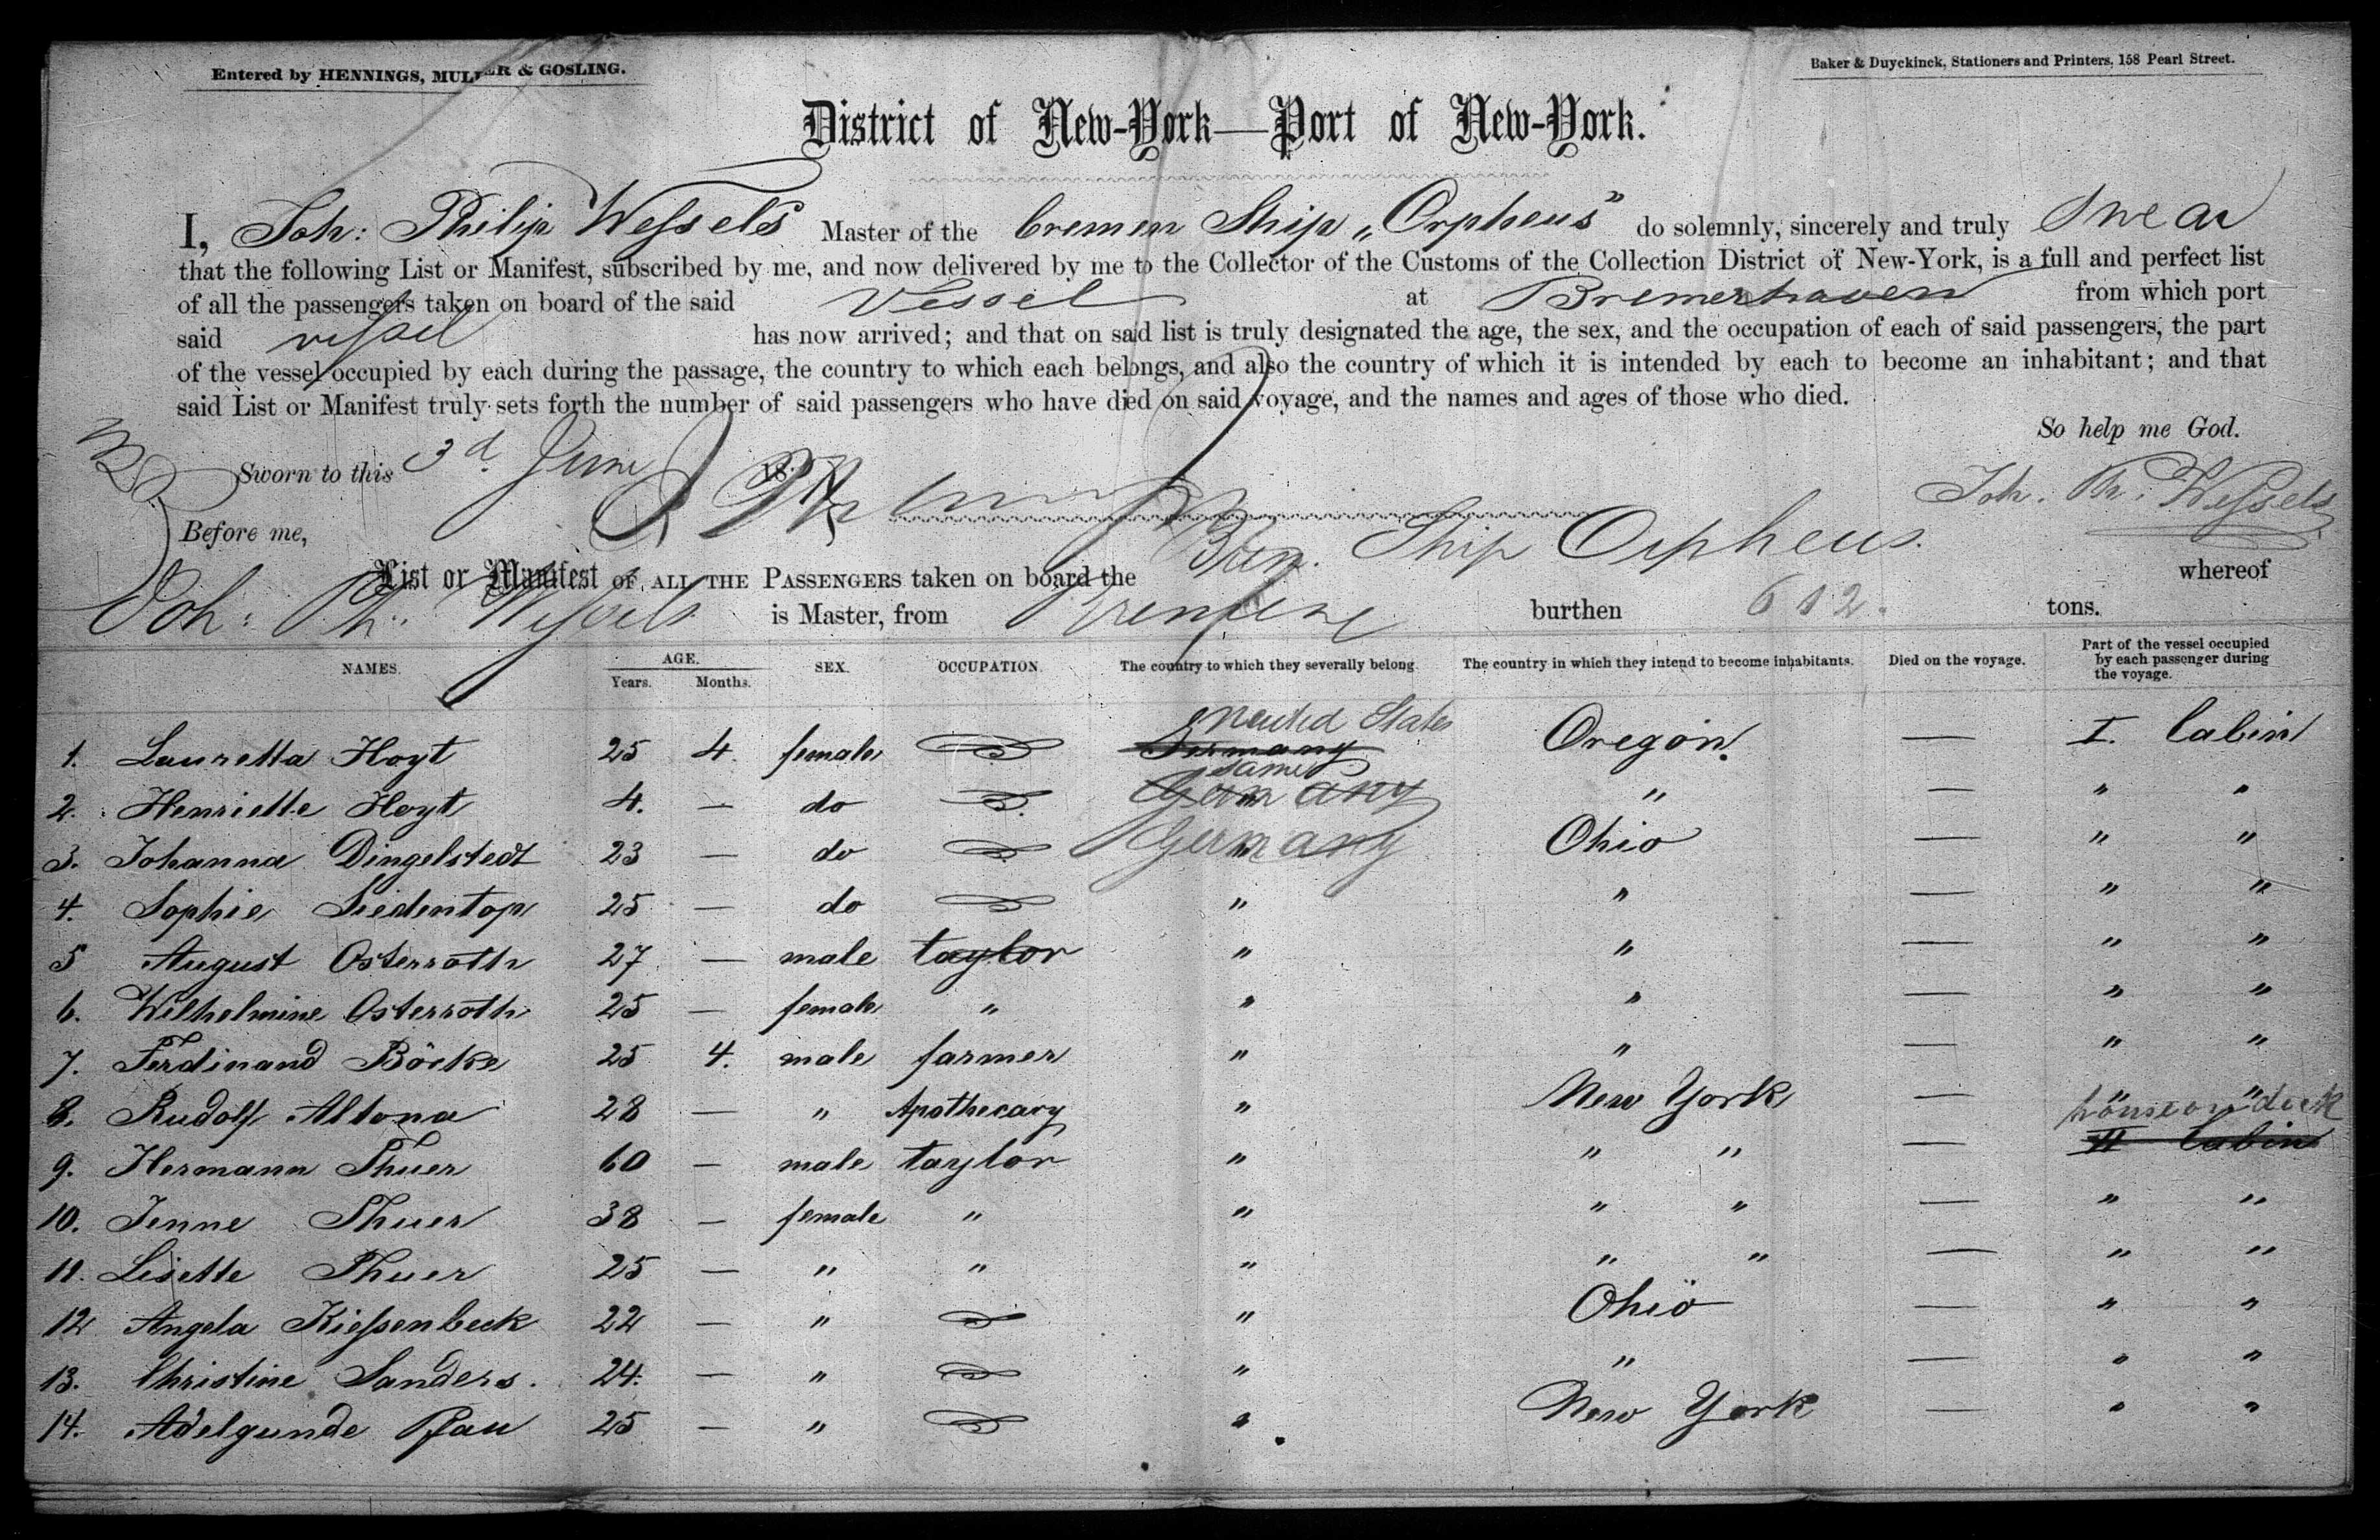 Entered by HENNINGS, MULLER & GOSLING.
Baker & Duyckinck, Stationers and Printers, 158 Pearl Street.
District of New-York—Port of New-York.
I, Joh: Philip Wessels Master of the bremen Ship „Orpheus" do solemnly, sincerely and truly swear
that the following List or Manifest, subscribed by me, and now delivered by me to the Collector of the Customs of the Collection District of New-York, is a full and perfect list
of all the passengers taken on board of the said Vessel at Bremerhaven from which port
said vessel has now arrived; and that on said list is truly designated the age, the sex, and the occupation of each of said passengers, the part
of the vessel occupied by each during the passage, the country to which each belongs, and also the country of which it is intended by each to become an inhabitant; and that
said List or Manifest truly sets forth the number of said passengers who have died on said voyage, and the names and ages of those who died.
So help me God.
Sworn to this 3d June 18
Joh. Ph. Wessels
Before me,
List or Manifest OF ALL THE PASSENGERS taken on board the Brem. Ship Orpheus. whereof
Joh: Ph: Wessels is Master, from burthen 612. tons.
NAMES. AGE. Years. Months. SEX. OCCUPATION. The country to which they severally belong. The country in which they intend to become inhabitants. Died on the voyage. Part of the vessel occupied by each passenger during the voyage.
United States
1. Lauretta Hoyt 25 4. female Germany Oregon. — I. Cabin
same
2. Henriette Hoyt 4. — do Germany " — " "
3. Johanna Dingelstedt 23 — do Germany Ohio — " "
4. Sophie Siedentop 25 — do " " — " "
5 August Osterroth 27 — male taylor " " — " "
6. Wilhelmine Osterroth 25 — female " " " — " "
7. Ferdinand Böcke 25 4. male farmer " " — " "
8. Rudolf Altona 28 — " Apothecary " New York — " "
house on deck
9. Hermann Thuer 60 — male taylor " " " — II Cabin
10. Jenne Thuer 38 — female " " " " — " "
11. Lisette Thuer 25 — " " " " " — " "
12 Angela Kiessenbeck 22 — " " Ohio — " "
13. Christine Sanders. 24. — " " " — " "
14. Adelgunde Pfau 25 — " " New York — " "